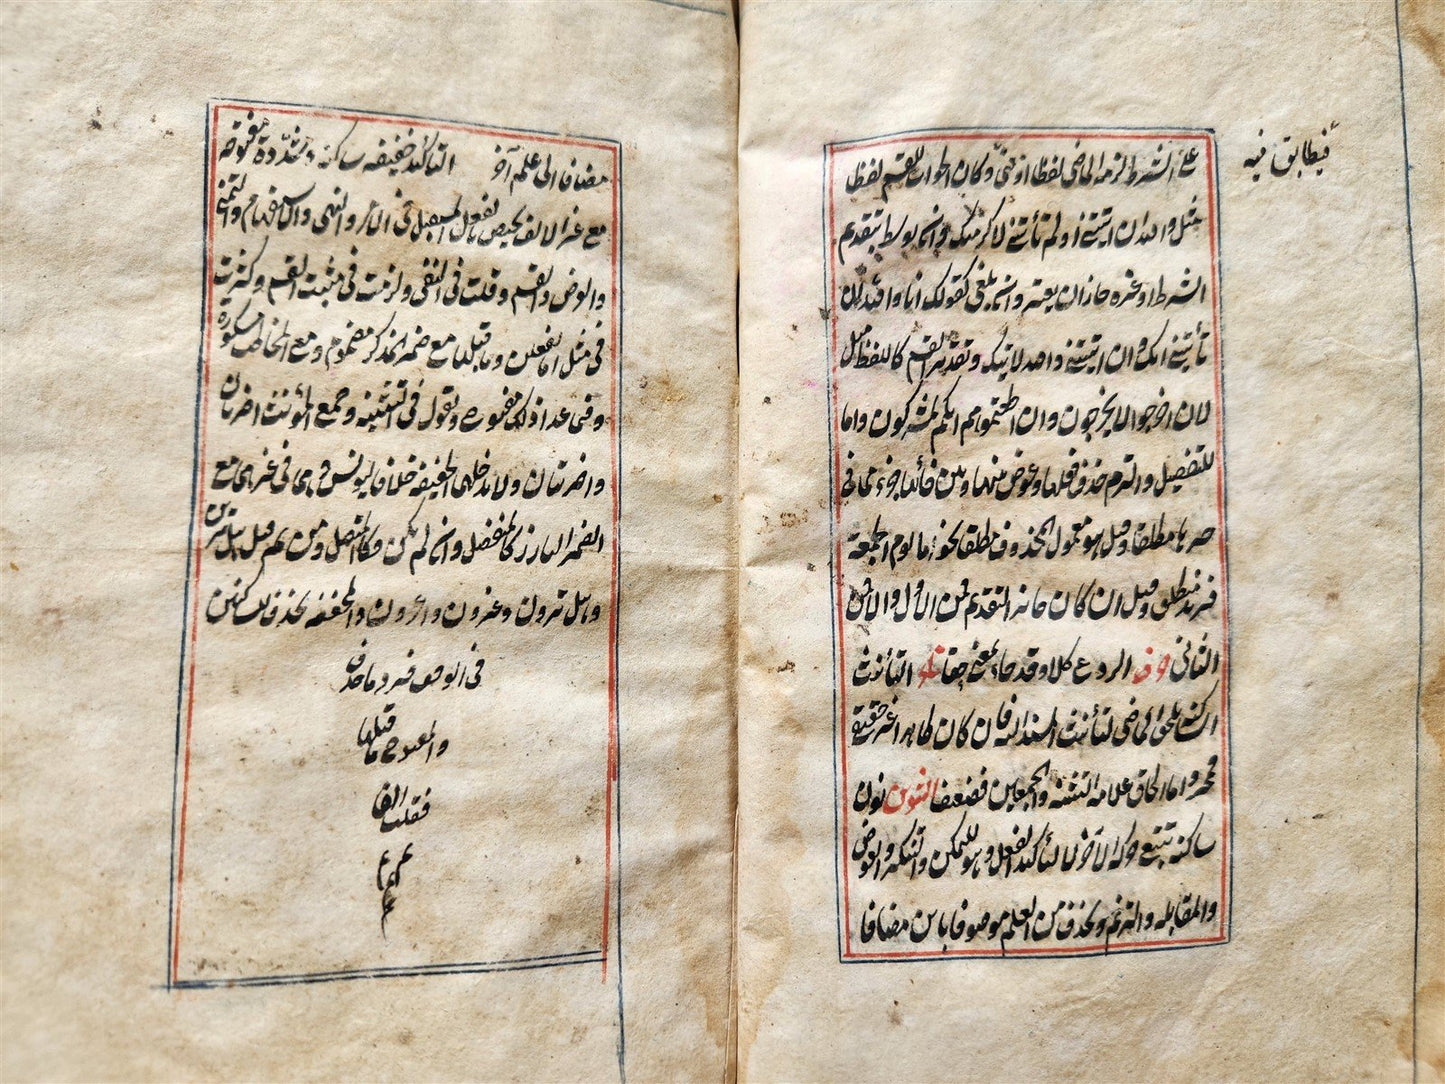 فيطابق فيه
على الشرط لزمه الماضى لفظا او معنى وكان الجواب للقسم لفظا
مثل والله ان اتيتنى او لم تأتنى لاكرمتك وان توسط بتقديم
الشرط او غيره جاز ان يعتبر وان يلغى كقولك انا والله ان
تأتنى آتك وان اتيتنى والله لاتيتك وتقدير القسم كاللفظ مثل
لان اخرجوا لا يخرجون وان اطعتموهم انكم لمشركون واما
للتفصيل والتزم حذف فعلها وعوض بينها وبين فائها جزء مما فى
حيزها مطلقا وقيل هو معمول المحذوف مطلقا نحو اما يوم الجمعة
فزيد منطلق وقيل ان كان جائز التقديم فمن الاول والا فمن
الثانى حرف الردع كلا وقد جاء بمعنى حقا تاء التأنيث
الساكنة تلحق الماضى لتأنيث المسند اليه فان كان ظاهرا غير حقيقى
فمخير واما الحاق علامة التثنية والجمعين فضعيف التنوين نون
ساكنة تتبع حركة الآخر لا لتأكيد الفعل وهو للتمكن والتنكير والعوض
والمقابلة والترنم ويحذف من العلم موصوفا بابن مضافا
مضافا الى علم آخر التاكيد خفيفة ساكنة ومشددة مفتوحة
مع غير الالف تختص بالفعل المستقبل فى الامر والنهى والاستفهام والتمنى
والعرض والقسم وقلت فى النفى ولزمت فى مثبت القسم وكثرت
فى مثل اما تفعلن وما قبلها مع ضمير المذكر مضموم ومع المخاطبة مكسورة
وفى عدا ذلك مفتوح وتقول فى التثنية وجمع المؤنث اضربان
واضربنان ولا تدخلهما الخفيفة خلافا ليونس وهما فى غيرهما مع
الضمير البارز كالمنفصل وان لم يكن فكالمتصل ومن ثم قيل هل ترين
وهل ترون وغزون واغزون والمخففة تحذف للساكنين
فى الوقف فيرد ما حذف
والمفتوح ما قبلها
فقلبت الفا